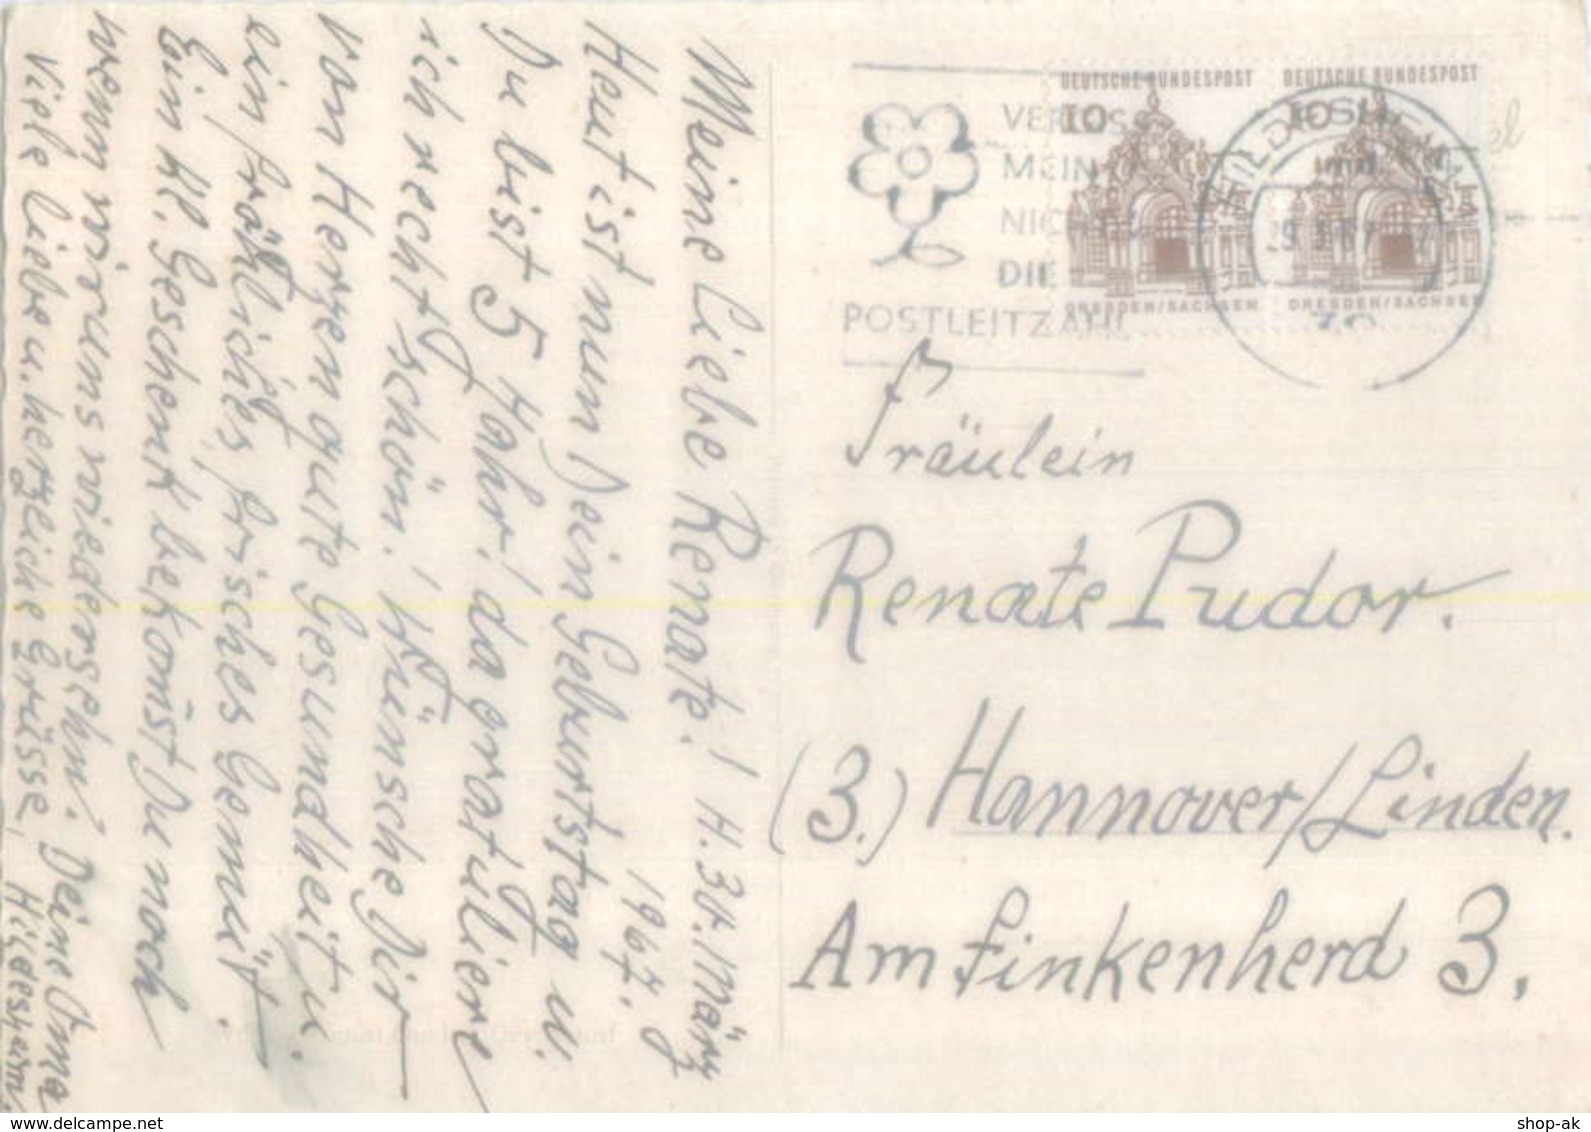 Meine liebe Renate! H. 30. März
1967.
Heut ist nun Dein Geburtstag u.
Du bist 5 Jahr! da gratuliere
ich recht schön! Wünsche Dir
von Herzen gute Gesundheit u.
ein fröhliches, frisches Gemüt.
Ein kl. Geschenk bekom̄st Du noch
wenn wir uns wiedersehn. Deine Oma
Viele liebe u. herzliche Grüsse, Hildesheim.
DEUTSCHE BUNDESPOST DEUTSCHE BUNDESPOST
10 10
DRESDEN/SACHSEN DRESDEN/SACHSEN
VERGISS
MEIN
NICHT
DIE
POSTLEITZAHL
HILDESHEIM
Fräulein
Renate Pudor.
(3.) Hannover/Linden.
Am Finkenherd 3.
shop-ak
www.delcampe.net